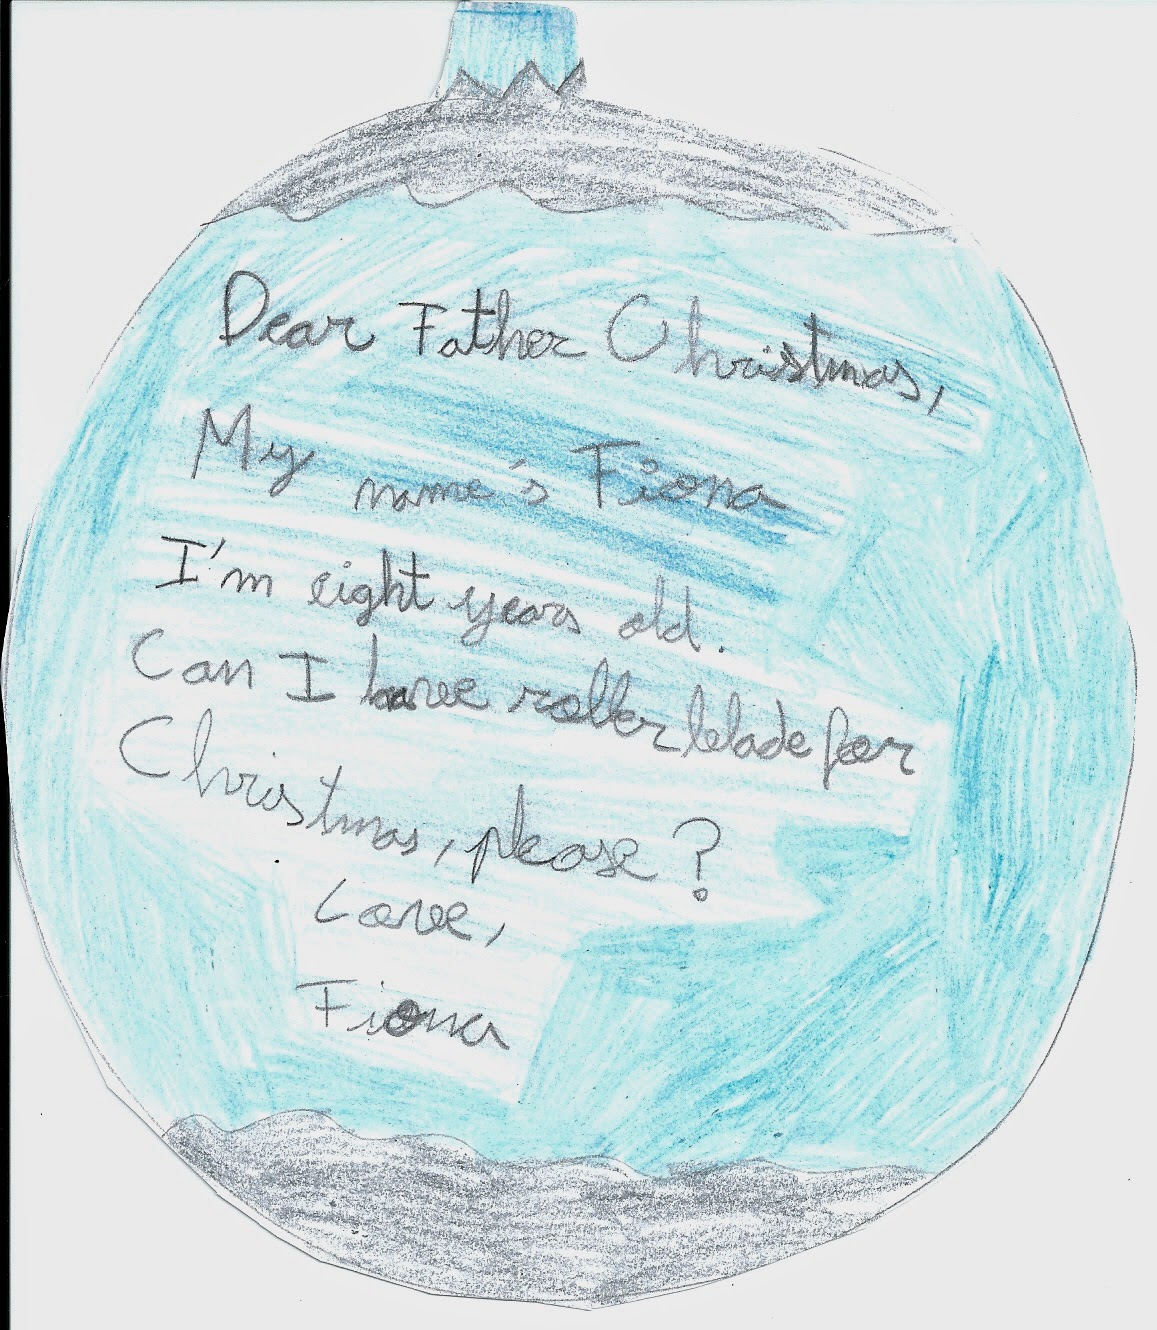 Dear Father Christmas,
My name's Fiona
I'm eight years old.
Can I have roller blade for
Christmas, please?
Love,
Fiona